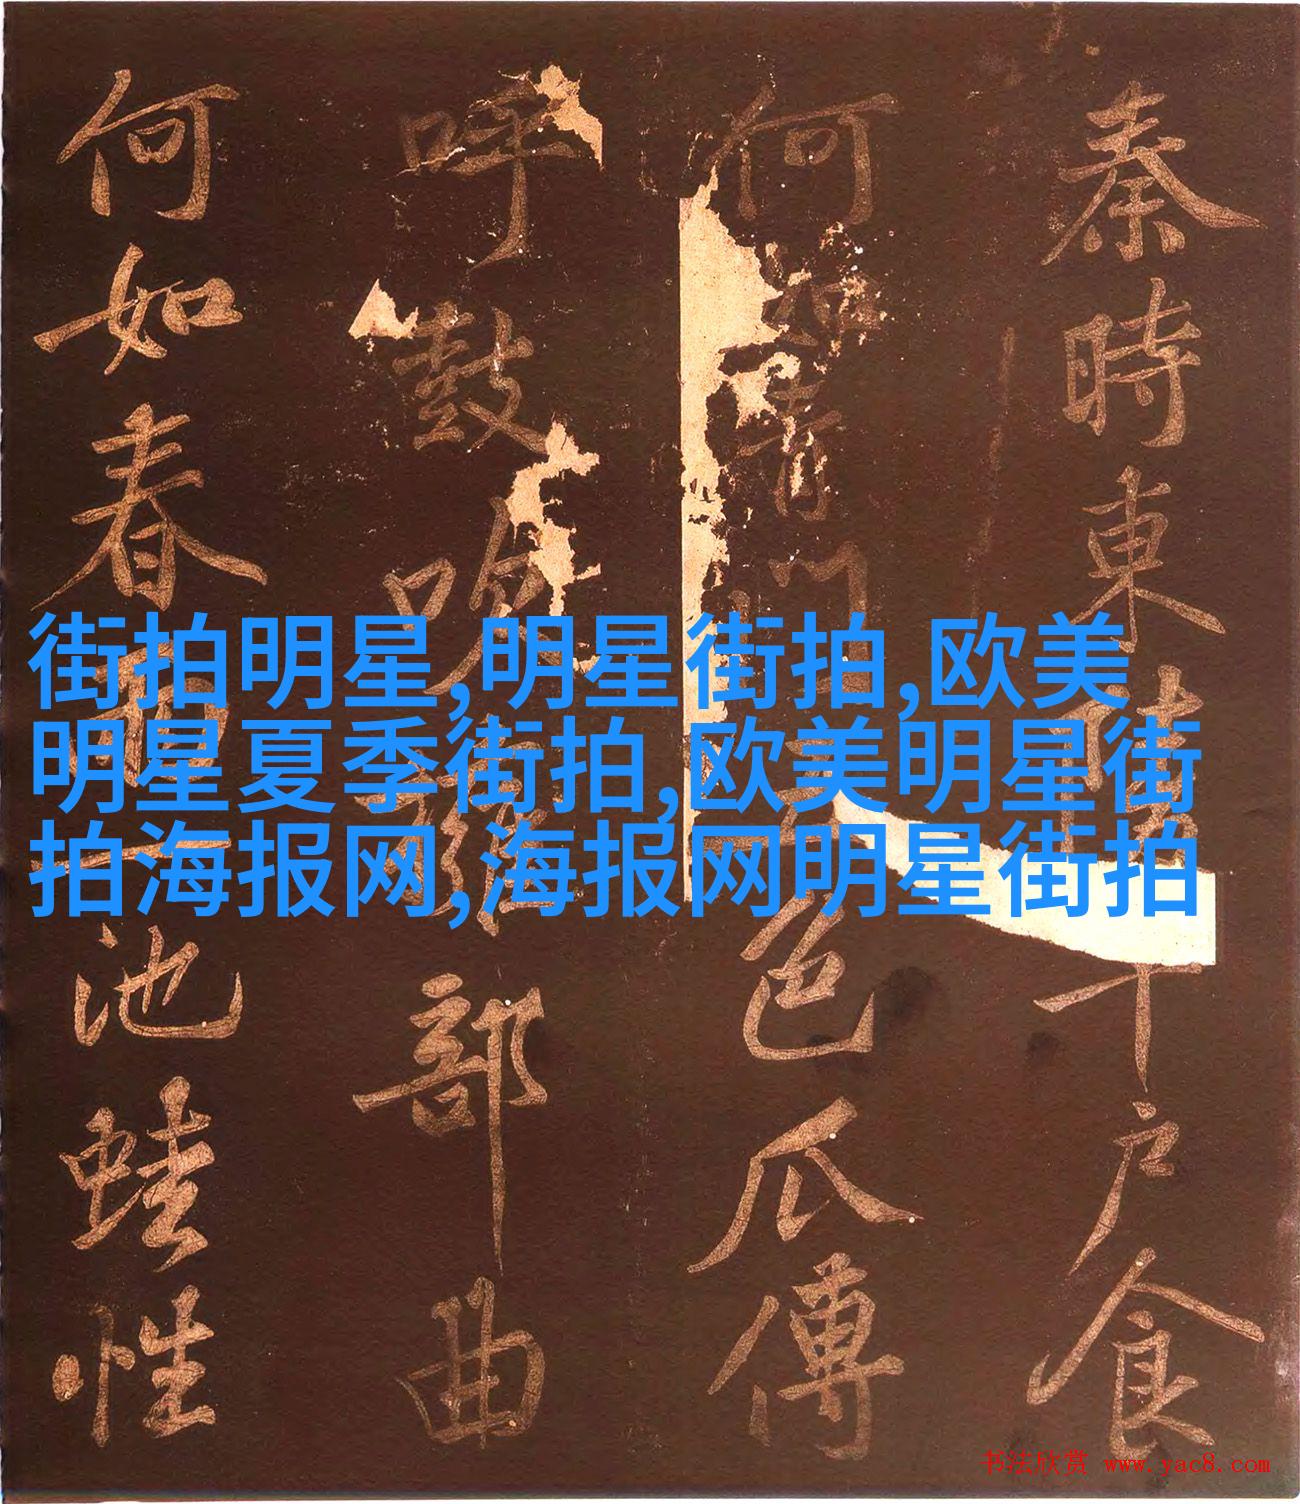 秦時東陵千戶食
何如青門五色瓜傅
呼鼓吹雜部曲
何如春雨一池蛙性
街拍明星,明星街拍,欧美
明星夏季街拍,欧美明星街
拍海报网,海报网明星街拍
书法欣赏 www.yac8.com